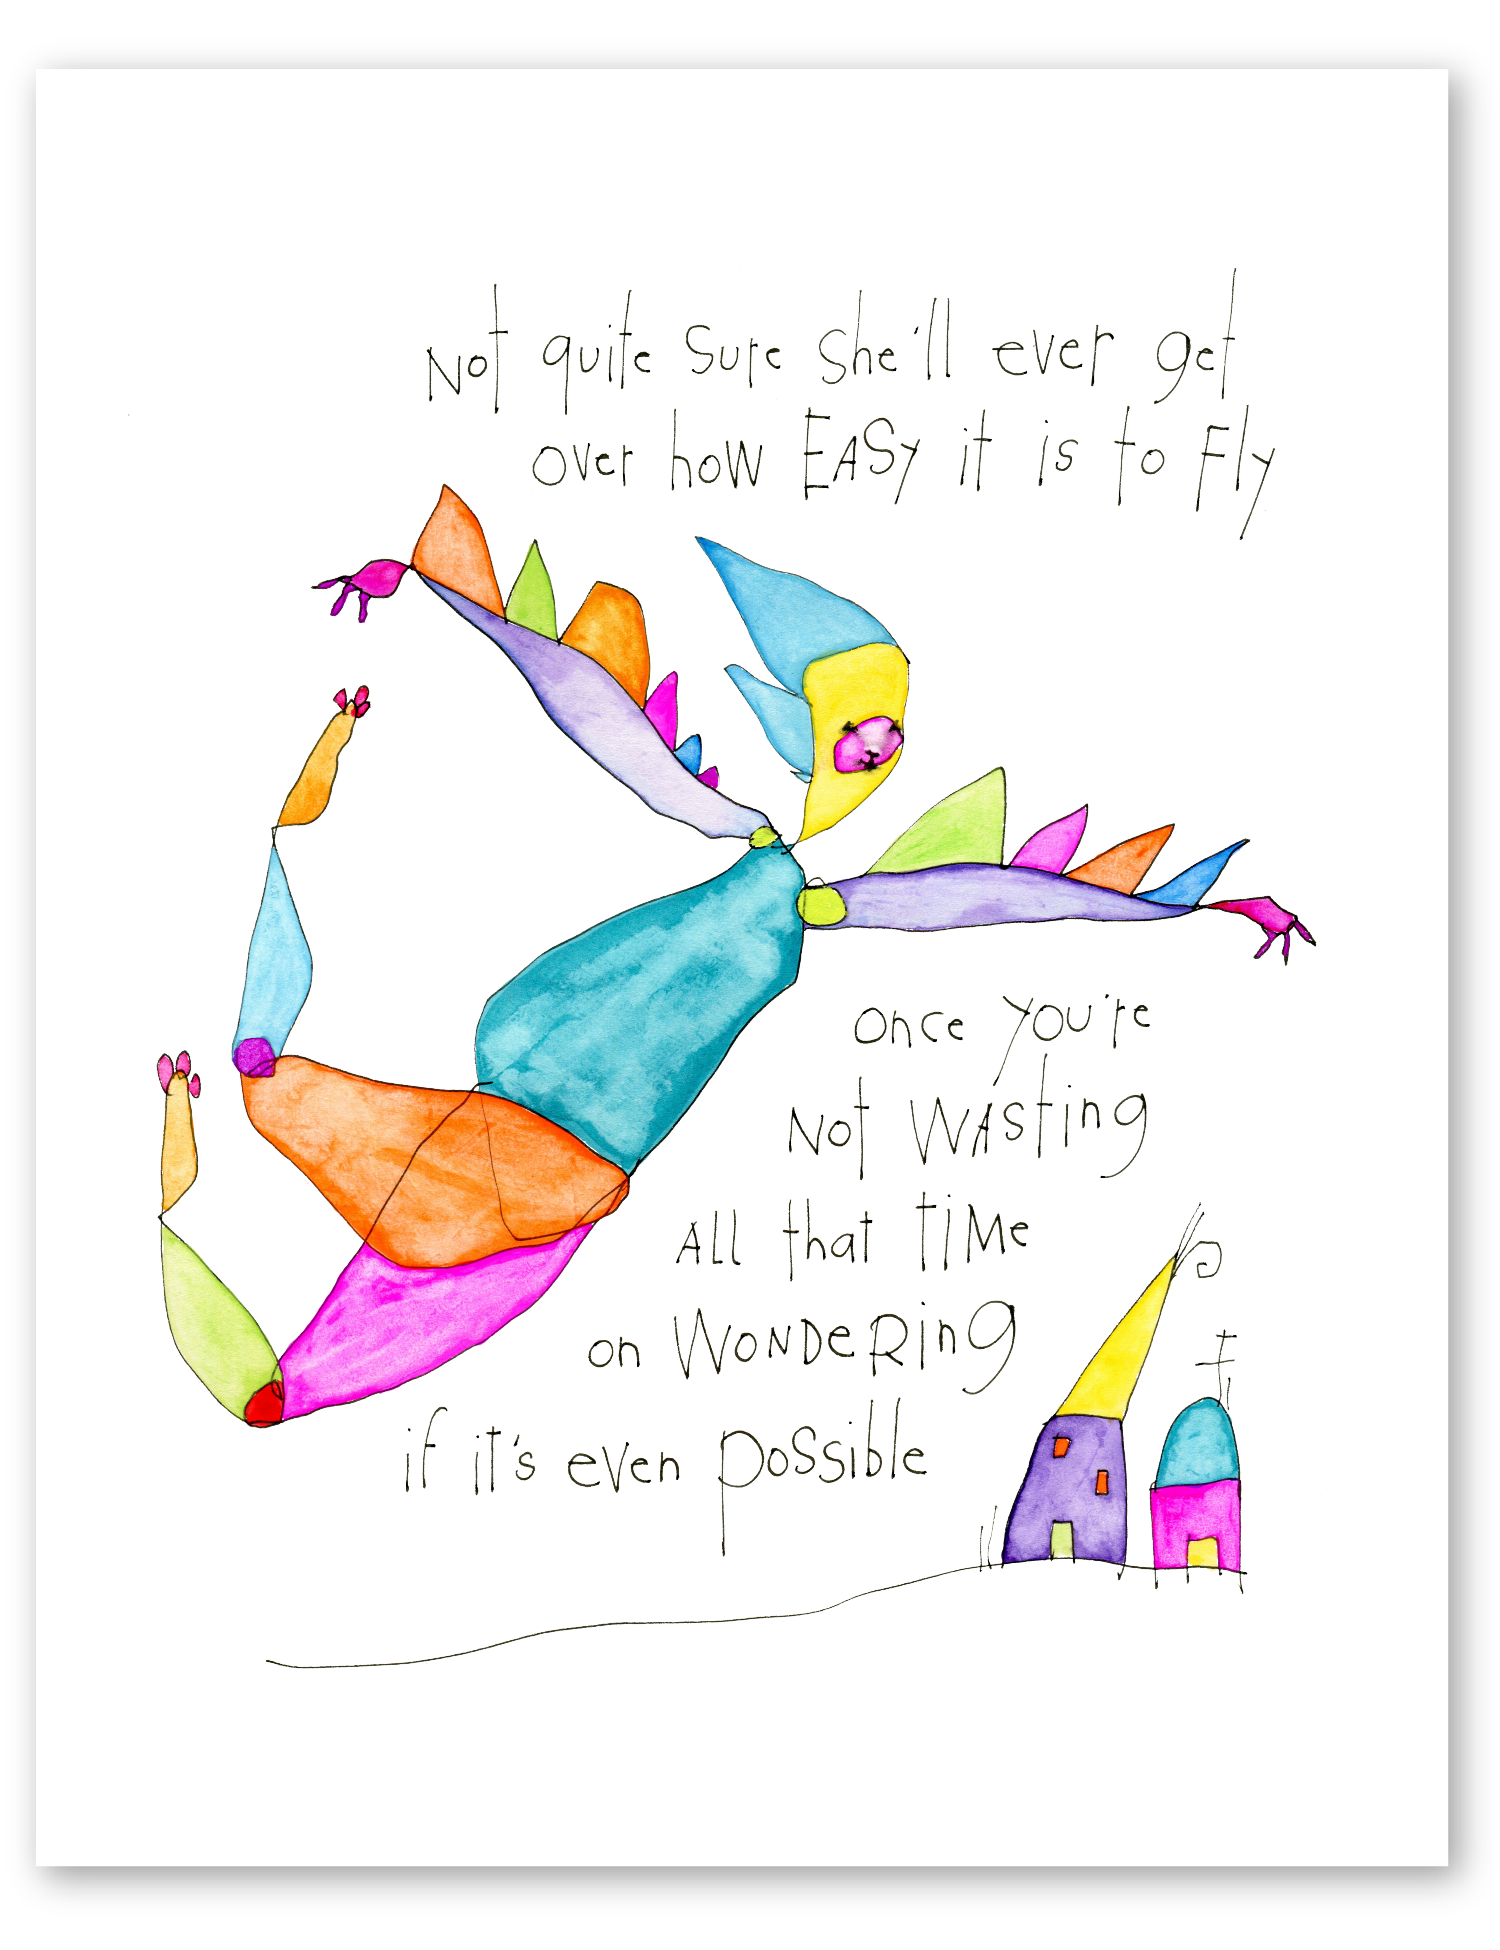 Not quite sure she'll ever get
over how EASy it is to Fly
once you're
Not WAsting
ALL that TiMe
on WONDeRing
if it's even possible